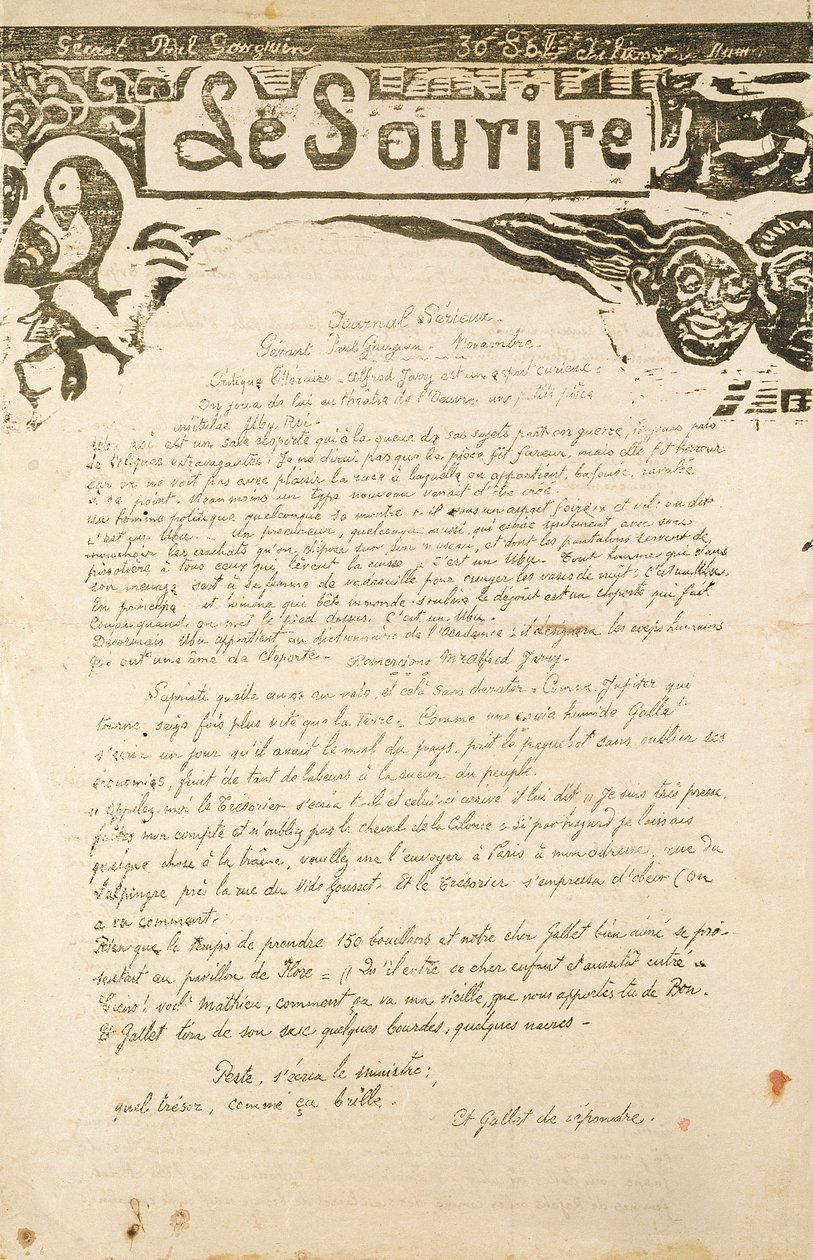 Gérant Paul Gauguin 30
Le Sourire
Journal Sérieux
Gérant Paul Gauguin - Novembre -
Critique littéraire - Alfred Jarry est un esprit curieux :
On joua de lui au théâtre de l'Oeuvre une petite pièce
intitulée Ubu Roi -
Ubu Roi est un sale cloporte qui à la queue de ses sujets part en guerre, toujours
de coliques extravagantes. Je ne dirai pas que la pièce fit fureur, mais elle fit horreur
car on ne voit pas avec plaisir la race à laquelle on appartient, bafouée, ravalée
à ce point. Néanmoins un type nouveau venait d'être créé
Un homme politique quelconque se montre t-il sous un aspect foireux et vil : on dit
c'est un Ubu - Un procureur, quelconque aussi, qui essuie seulement avec son
mouchoir les crachats qu'on dépose sur son museau, et dont les pantalons servent de
pissotière à tous ceux qui lèvent la cuisse - c'est un Ubu. Tout homme qui dans
son ménage sert à sa femme de vadrouille pour essuyer les vases de nuit : c'est un Ubu.
En principe et homme que bête immonde soulève le dégout est un cloporte qui fait
quand on met le pied dessus, c'est un Ubu.
Désormais Ubu appartient au dictionnaire de l'Academie : il désignera les corps humains
qui ont une âme de cloporte - Remercions Mr Alfred Jarry -
Sapristi quelle au vélo, et celà sans dérater - Comme Jupiter qui
tourne seize fois plus vite que la Terre, Comme une humide Gallet
s'écria un jour qu'il avait le mal du pays, prit le paquebot sans oublier ses
économies, fruit de tant de labeurs à la sueur du peuple.
" Appelez moi le Trésorier s'écria t-il et celui-ci arrivé il lui dit " Je suis très pressé,
faites mon compte et n'oubliez pas le cheval de la Colonie = Si par hazard je laissais
quelque chose à la traîne, veuillez me l'envoyer à Paris à mon adresse, rue du
près la rue du Vide Gousset - Et le Trésorier s'empressa d'obéir (On
a vu comment.
Rien que le temps de prendre 150 bouillons et notre cher Gallet bien aimé se pré-
sentait au pavillon de Flore = " Qu'il entre ce cher enfant et aussitôt entré -
Tiens ! voilà Mathieu, comment ça va ma vieille, que nous apportes tu de Bon.
Et Gallet tira de son sac quelques bourdes, quelques nacres -
Peste, s'écria le ministre ;
quel trésor, comme ça brille -
Et Gallet de répondre.